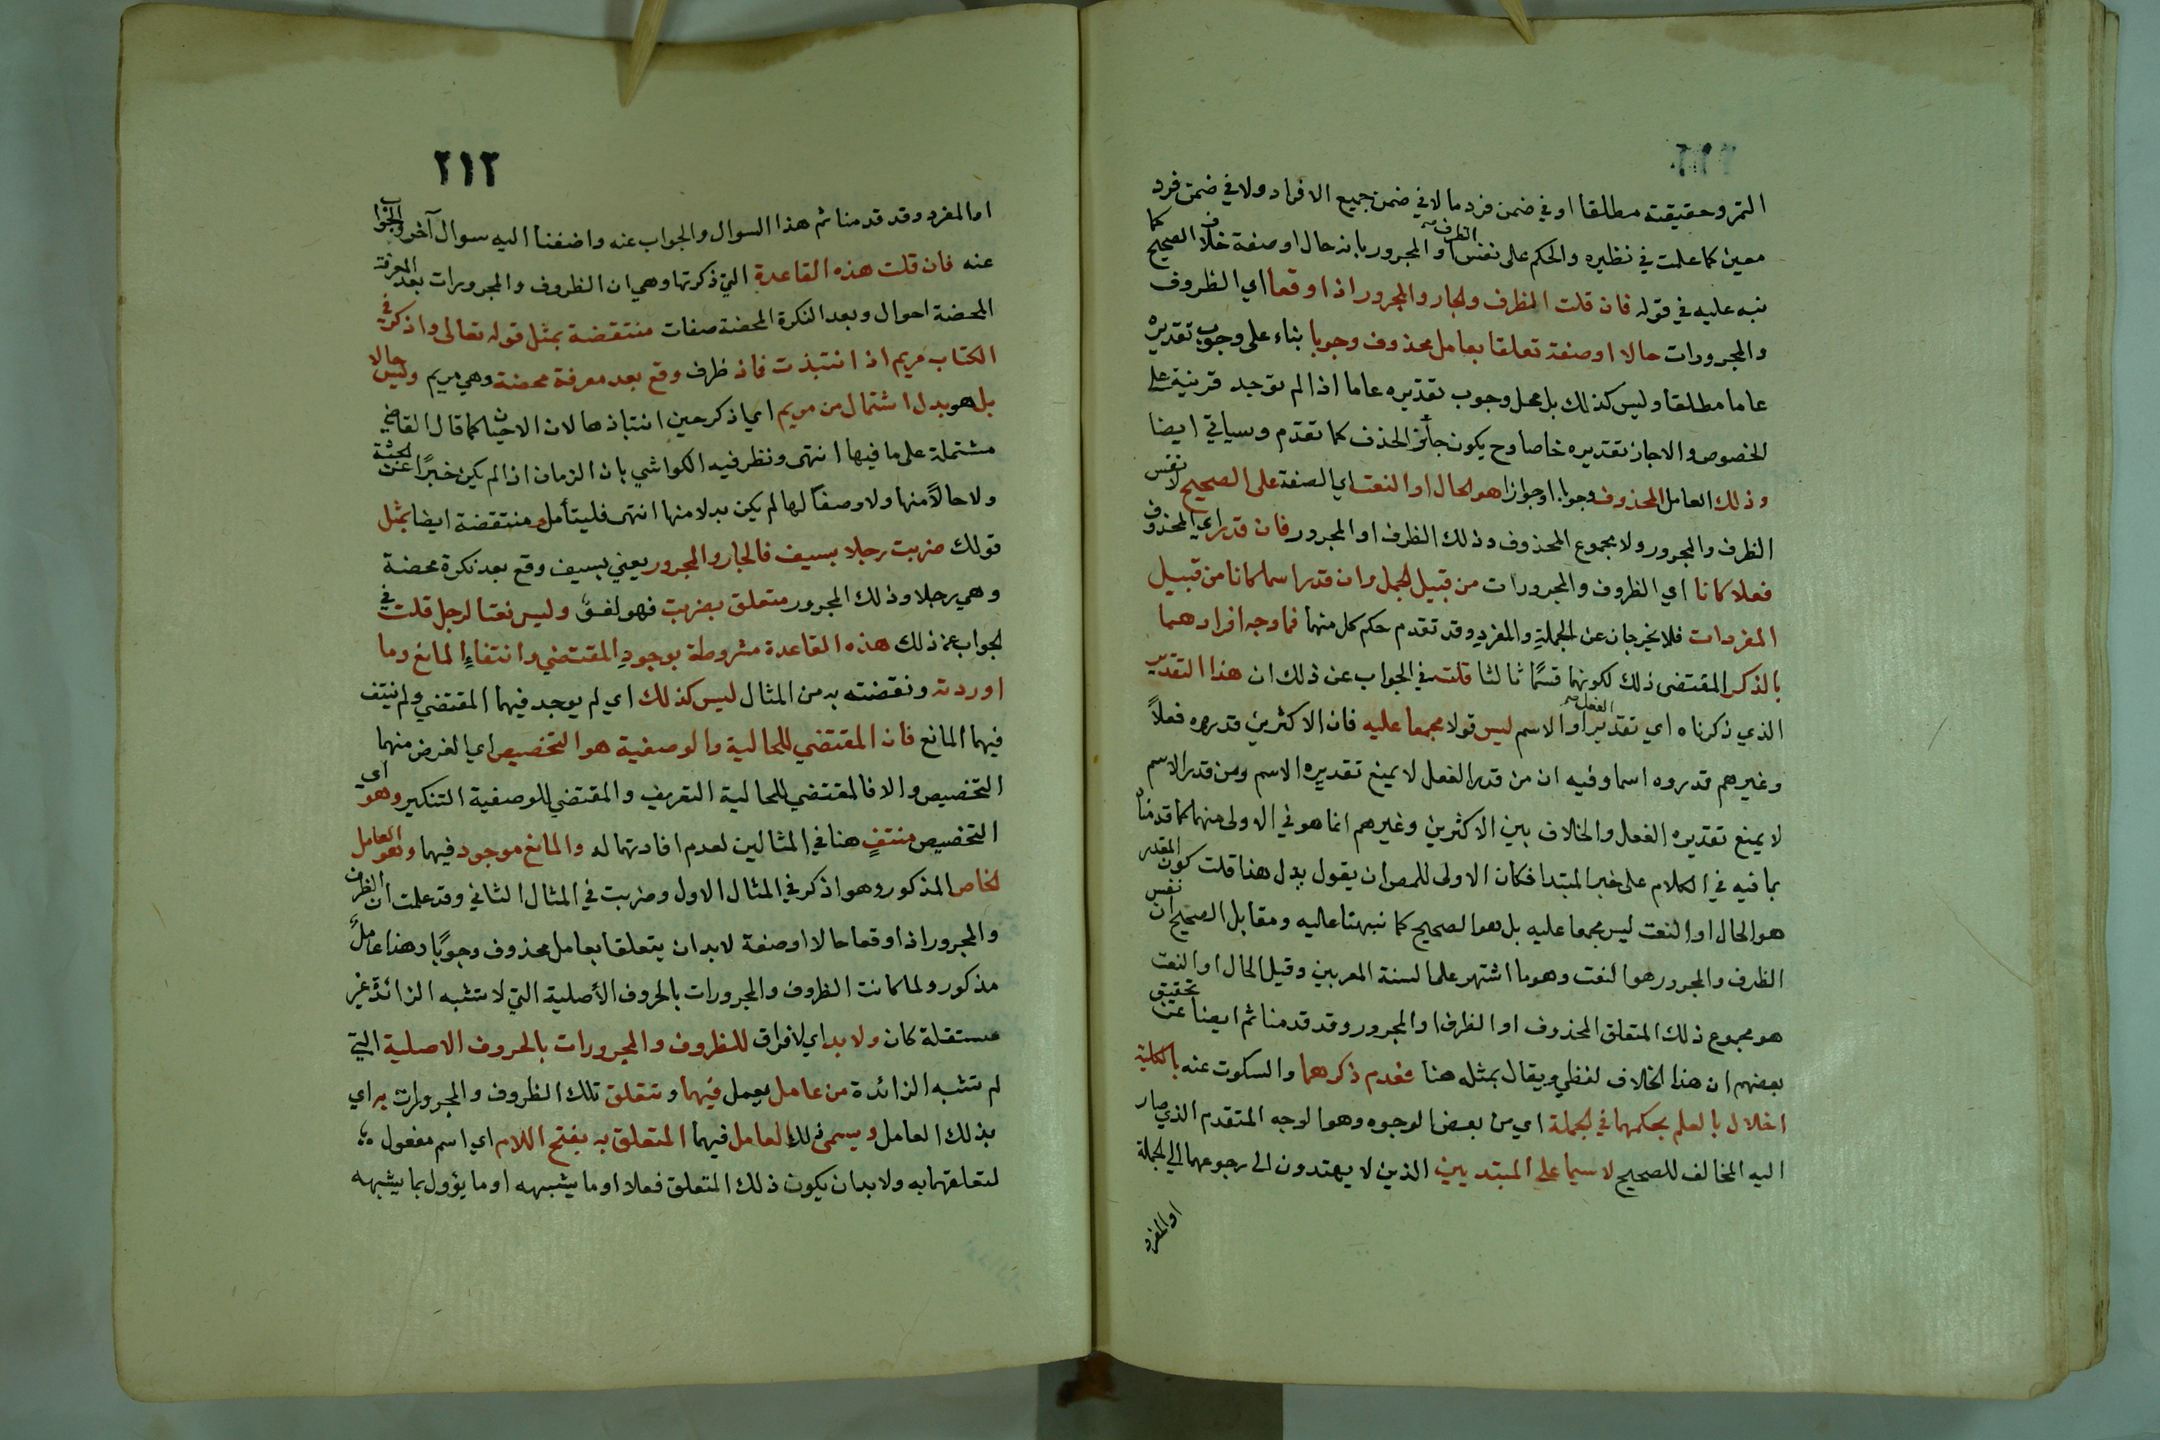 الثمر وحقيقته مطلقا او في ضمن فرد ما لا في ضمن جميع الافراد ولا في ضمن فرد
معين كما علمت في نظيره والحكم على نفس الظرف او المجرور بانه حال او صفة خلاف الصحيح كما
نبه عليه في قوله فان قلت الظرف والجار والمجرور اذا وقعا اي الظروف
والمجرورات حالا او صفة تعلقا بعامل محذوف وجوبا بناء على وجوب تقديره
عاما مطلقا وليس كذلك بل محل وجوب تقديره عاما اذا لم توجد قرينة على
الخصوص والا جاز تقديره خاصا وح يكون جائز الحذف كما تقدم وسياتي ايضا
وذلك العامل المحذوف وجوبا او جوازا هو الحال او النعت اي الصفة على الصحيح لا نفس
الظرف والمجرور ولا مجموع المحذوف وذلك الظرف او المجرور فان قدر اي المحذوف
فعلا كانا اي الظروف والمجرورات من قبيل الجمل وان قدر اسما كانا من قبيل
المفردات فلا يخرجان عن الجملة والمفرد وقد تقدم حكم كل منهما فما وجه افرادهما
بالذكر المقتضى ذلك لكونهما قسمًا ثالثا قلت في الجواب عن ذلك ان هذا التقدير
الذي ذكرناه اي تقدير الفعل او الاسم ليس قولا مجمعا عليه فان الاكثرين قدروه فعلاً
وغيرهم قدروه اسما وفيه ان من قدر الفعل لا يمنع تقديره الاسم ومن قدر الاسم
لا يمنع تقديره الفعل والخلاف بين الاكثرين وغيرهم انما هو في الاولى منهما كما قدمناه
بما فيه في الكلام على خبر المبتدا فكان الاولى للمص ان يقول بدل هنا قلت كون المقدر
هو الحال او النعت ليس مجمعا عليه بل هو الصحيح كما نبهنا عليه ومقابل الصحيح ان نفس
الظرف والمجرور هو النعت وهو ما اشتهر على السنة المعربين وقيل الحال او النعت
هو مجموع ذلك المتعلق المحذوف او الظرف او المجرور وقد قدمنا ثم ايضا عن تحقيق
بعضهم ان هذا الخلاف لفظي ويقال بمثله هنا فعدم ذكرهما والسكوت عنه بالكلية
اخلال بالعلم بحكمهما في الجملة اي من بعض الوجوه وهو الوجه المتقدم الذي صار
اليه المخالف للصحيح لا سيما على المبتديين الذين لا يهتدون الى رجوعهما الي الجملة
او المفرد
٢١٢
او المفرد وقد قدمنا ثم هذا السوال والجواب عنه واضفنا اليه سوال آخر والجواب
عنه فان قلت هذه القاعدة التي ذكرتها وهي ان الظروف والمجرورات بعد المعرفة
المحضة احوال وبعد النكرة المحضة صفات منتقضة بمثل قوله تعالى واذكر في
الكتاب مريم اذ انتبذت فاذ ظرف وقع بعد معرفة محضة وهي مريم وليس حالا
بل هو بدل اشتمال من مريم اي اذكر حين انتباذها لان الاحيان كما قال القاضي
مشتملة على ما فيها انتهى ونظر فيه الكواشي بان الزمان اذا لم يكن خبرًا عن الجثة
ولا حالاً منها ولا وصفاً لها لم يكن بدلا منها انتهى فليتأمل ومنتقضة ايضا بمثل
قولك ضربت رجلا بسيف فالجار والمجرور يعني بسيف وقع بعد نكرة محضة
وهي رجلا وذلك المجرور متعلق بضربت فهو لغو وليس نعتا لرجل قلت في
الجواب عن ذلك هذه القاعدة مشروطة بوجود المقتضي وانتفاء المانع وما
اوردته ونقضته به من المثال ليس كذلك اي لم يوجد فيهما المقتضي ولم ينتف
فيهما المانع فان المقتضي للحالية والوصفية هو التخصيص اي الغرض منهما
التخصيص والا فالمقتضي للحالية التعريف والمقتضي للوصفية التنكير وهو اي
التخصيص منتفٍ هنا في المثالين لعدم افادتهما له والمانع موجود فيهما وهو العامل
الخاص المذكور وهو اذكر في المثال الاول وضربت في المثال الثاني وقد علمت ان الظرف
والمجرور اذا وقعا حالا او صفة لابد ان يتعلقا بعامل محذوف وجوبًا وهنا عاملٌ
مذكور ولما كانت الظروف والمجرورات بالحروف الأصلية التي لا تشبه الزائدة غير
مستقلة كان ولا بد اي لا فراق للظروف والمجرورات بالحروف الاصلية التي
لم تشبه الزائدة من عامل يعمل فيهما وتتعلق تلك الظروف والمجرورات به اي
بذلك العامل ويسمى ذلك العامل فيهما المتعلق به بفتح اللام اي اسم مفعول
لتعلقهما به ولا بد ان يكون ذلك المتعلق فعلا او ما يشبهه او ما يؤول بما يشبهه